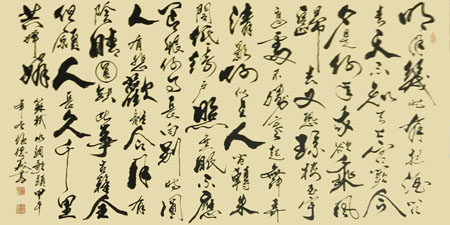 明月幾時有把酒問
青天不知天上宮闕今
夕是何年我欲乘風
歸去又恐瓊樓玉宇
高處不勝寒起舞弄
清影何似在人間轉朱
閣低綺戶照無眠不應
有恨何事長向別時圓
人有悲歡離合月有
陰晴圓缺此事古難全
但願人長久千里
共嬋娟
蘇軾水調歌頭甲午